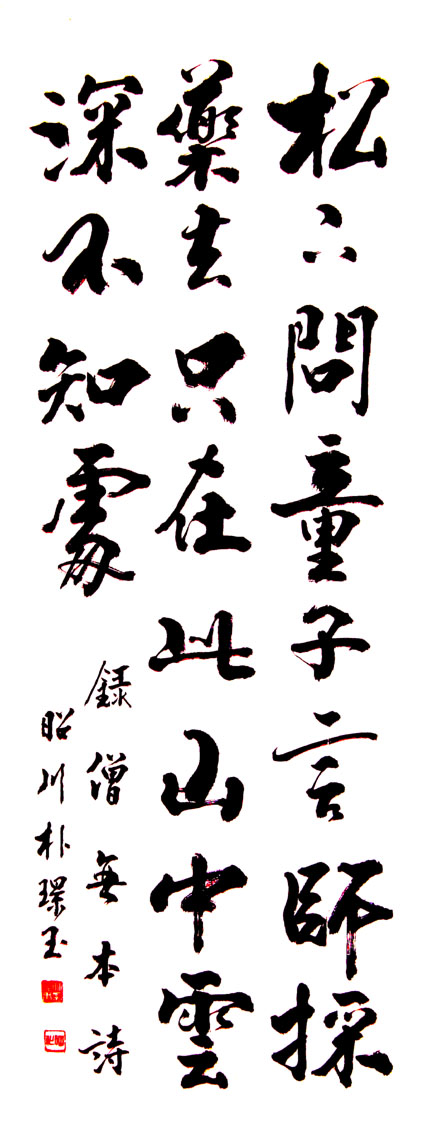 松下問童子言師採
藥去只在此山中雲
深不知處
録僧無本詩
昭川朴環玉